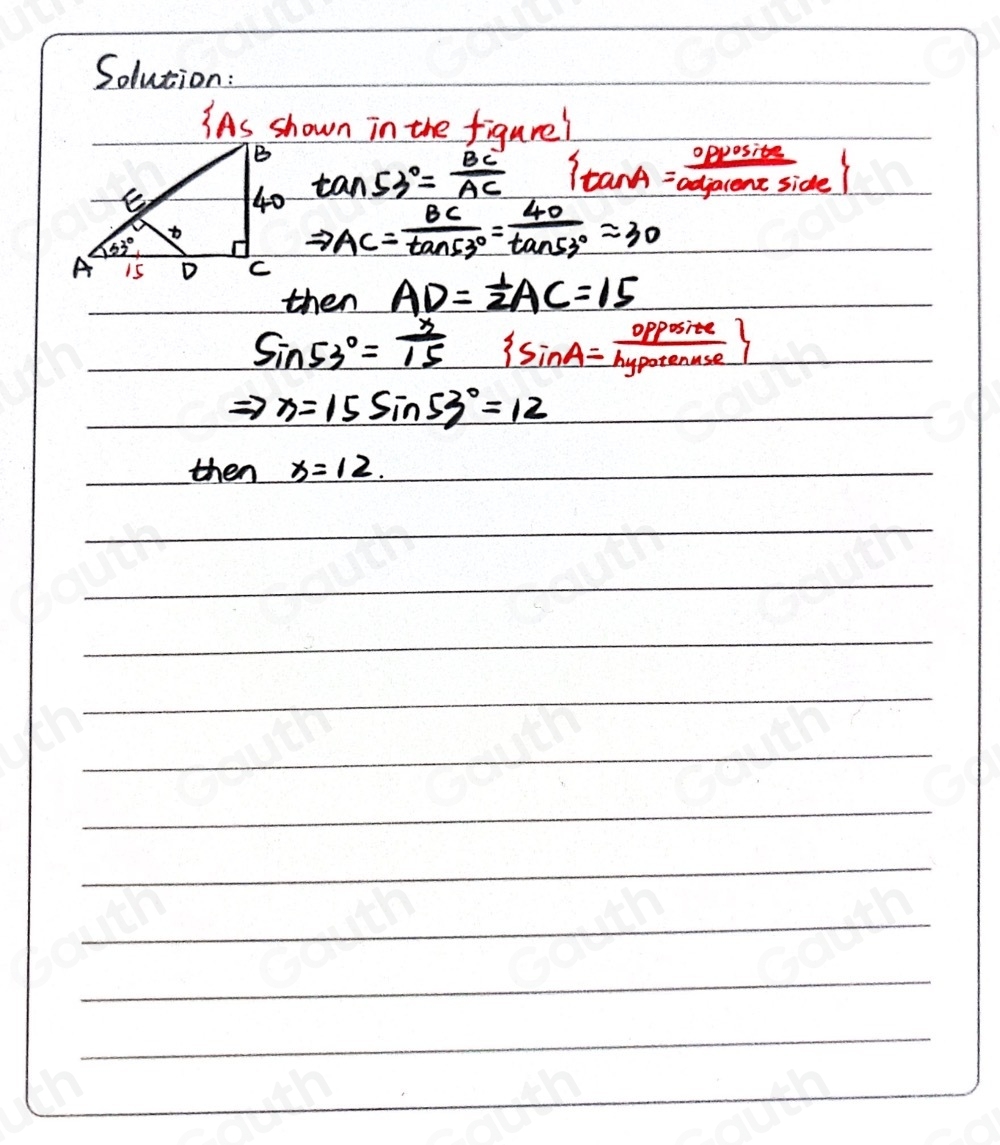 Solution:
{As shown in the figure}
B
tan 53° = BC/AC {tanA = opposite/adjacent side}
E
40
x
⇒ AC = BC/tan53° = 40/tan53° ≈ 30
53°
A 15 D C
then AD = 1/2 AC = 15
Sin 53° = x/15 {SinA = opposite/hypotenuse}
⇒ x = 15 Sin 53° = 12
then x = 12.
Gauth